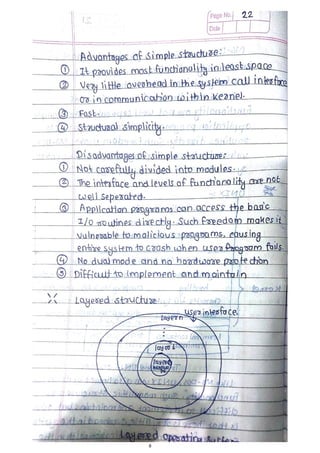 Page No. 22
Date
Advantages of Simple structure:
① It provides most functionality in least space
② Very little overhead in the system call interface
or in communication within kernel.
③ Fast.
④ Structural simplicity.
Disadvantages of simple structure:
① Not carefully divided into modules.
② The interface and levels of functionality are not
well seperated.
③ Application programs can access the basic
I/O routines directly. Such freedom makes it
vulnerable to malicious programs, causing
entire system to crash when user program fails.
④ No dual mode and no hardware protection
⑤ Difficult to implement and maintain
Layered structure
user interface.
layer n
layer 1
layer 0
Layered operating